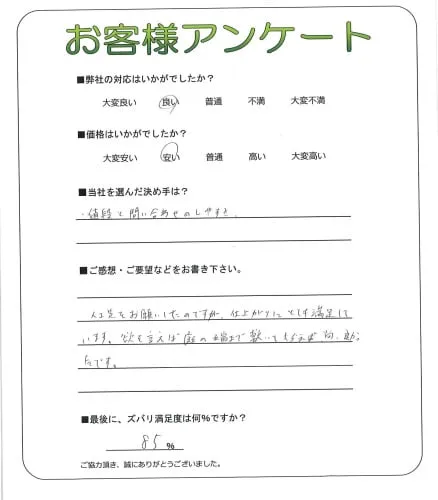 お客様アンケート
■弊社の対応はいかがでしたか？
大変良い 良い 普通 不満 大変不満
■価格はいかがでしたか？
大変安い 安い 普通 高い 大変高い
■当社を選んだ決め手は？
・値段と問い合わせのしやすさ。
■ご感想・ご要望などをお書き下さい。
人工芝をお願いしたのですが、仕上がりにとても満足して
います。欲を言えば庭の端まで敷いて
たです。
■最後に、ズバリ満足度は何％ですか？
85％
ご協力頂き、誠にありがとうございました。